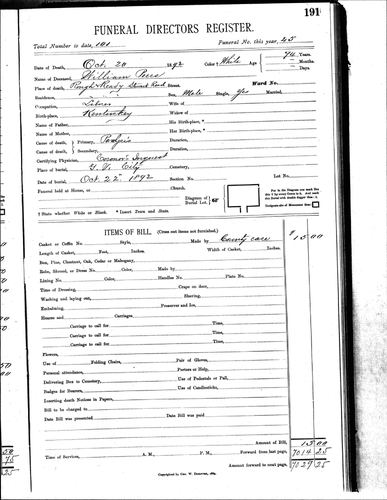 191
FUNERAL DIRECTORS REGISTER.
Total Number to date, 101 Funeral No. this year, 45
Date of Death, Oct. 20 1892 Color † White Age 74 Years.
– Months
– Days.
Name of Deceased, William
Place of death, Rough & Ready Road Street. Ward No.
Residence, Sex, Male Single, Yes Married.
Occupation, Wife of
Birth-place, Kentuckey Widow of
Name of Father, His Birth-place, *
Name of Mother, Her Birth-place, *
Cause of death, Primary, Duration,
Cause of death, Secondary, Duration,
Certifying Physician, Coroner's Inquest
Place of burial, G. V. City Cemetery,
Date of burial, Oct. 22" 1892 Section No. Lot No.
Funeral held at Home, or Church.
Diagram of Burial Lot.
† State whether White or Black. * Insert Town and State.
ITEMS OF BILL, (Cross out items not furnished.)
Casket or Coffin No. Style, Made by County case $ 15.00
Length of Casket, Feet, Inches. Width of Casket, Inches.
Box, Pine, Chestnut, Oak, Cedar or Mahogany,
Robe, Shroud, or Dress No. Color, Made by
Lining No. Color, Handles No. Plate No.
Time of Dressing, Crape on door,
Washing and laying out, Shaving,
Embalming, Preserver and Ice,
Hearse and Carriages.
Carriage to call for Time,
Carriage to call for Time,
Carriage to call for Time,
Carriage to call for Time,
Flowers,
Use of Folding Chairs, Pair of Gloves,
Personal attendance, Porters or Help,
Delivering Box to Cemetery, Use of Pedestals or Pall,
Badges for Bearers, Use of Candlesticks,
Inserting death Notices in Papers,
Bill to be charged to
Date Bill was presented Date Bill was paid
Amount of Bill, 15.00
Time of Services, A. M., P. M. Forward from last page, 7014 25
Amount forward to next page, 7029 25